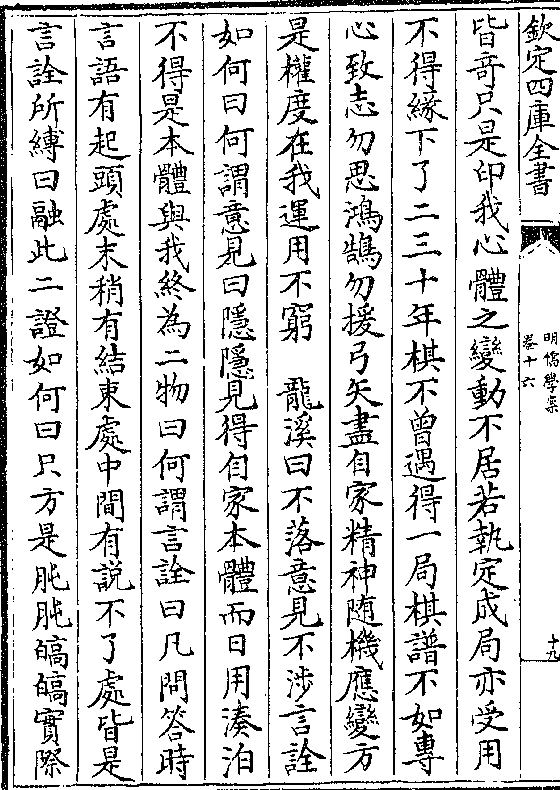 欽定四庫全書
明儒學案
卷十六
十九
皆奇只是印我心體之變動不居若執定成局亦受用
不得緣下了二三十年棋不曾遇得一局棋譜不如專
心致志勿思鴻鵠勿援弓矢盡自家精神随機應變方
是權度在我運用不窮　龍溪曰不落意見不涉言詮
如何曰何謂意見曰隱隱見得自家本體而日用湊泊
不得是本體與我終為二物曰何謂言詮曰凡問答時
言語有起頭處末稍有結束處中間有説不了處皆是
言詮所縛曰融此二證如何曰只方是肫肫皜皜實際